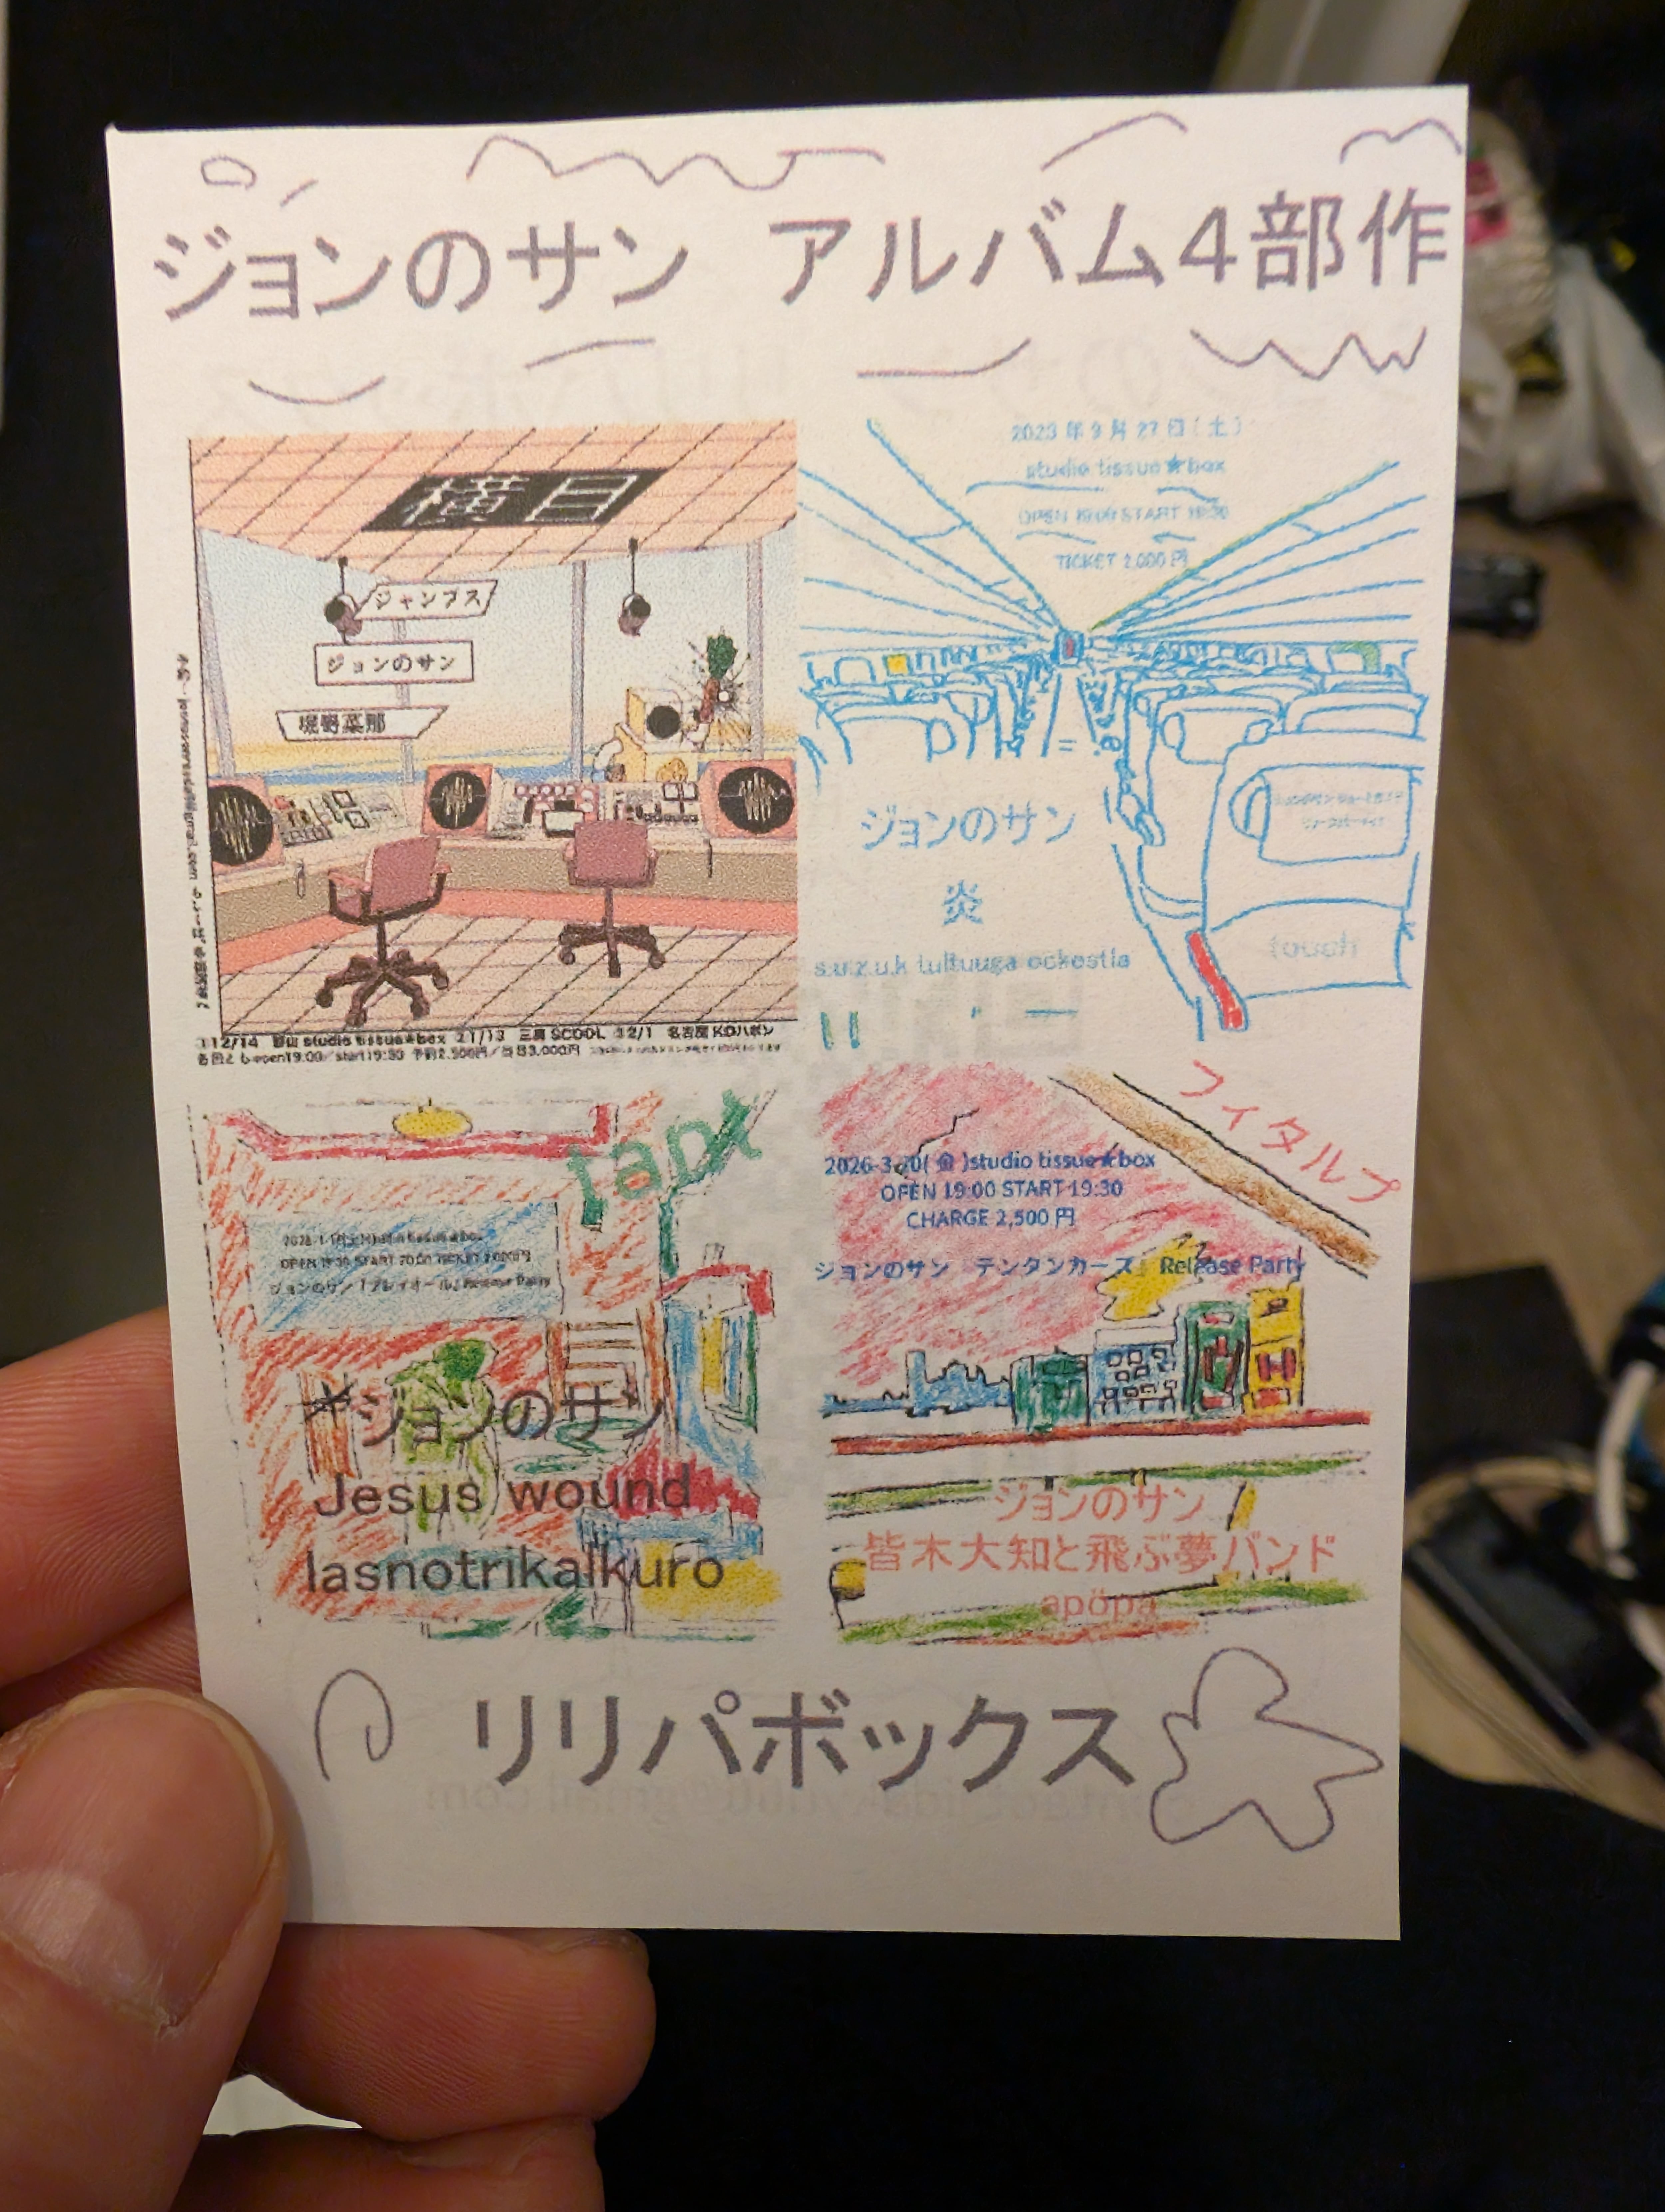 ジョンのサン アルバム4部作
横目
ジャンプス
ジョンのサン
堀野菜那
12/14 studio tissue★box 11/13 三鷹 SCOOL 12/1 名古屋 KDハポン
open19:00/start19:30 予約2,500円/当日3,000円
年9月27日(土)
studio tissue★box
OPEN 19:00 START 19:30
TICKET 2,000円
ジョンのサン
炎
touch
tapt
OPEN 19:30 START 20:00 TICKET 2,000円
ジョンのサン「プレイボール」Release Party
ジョンのサン
Jesus wound
lasnotrikalkuro
フィタルプ
2026 3 20(金)studio tissue★box
OPEN 19:00 START 19:30
CHARGE 2,500円
ジョンのサン テンタンカーズ Release Party
ジョンのサン
皆木大知と飛ぶ夢バンド
apöpa
リリパボックス